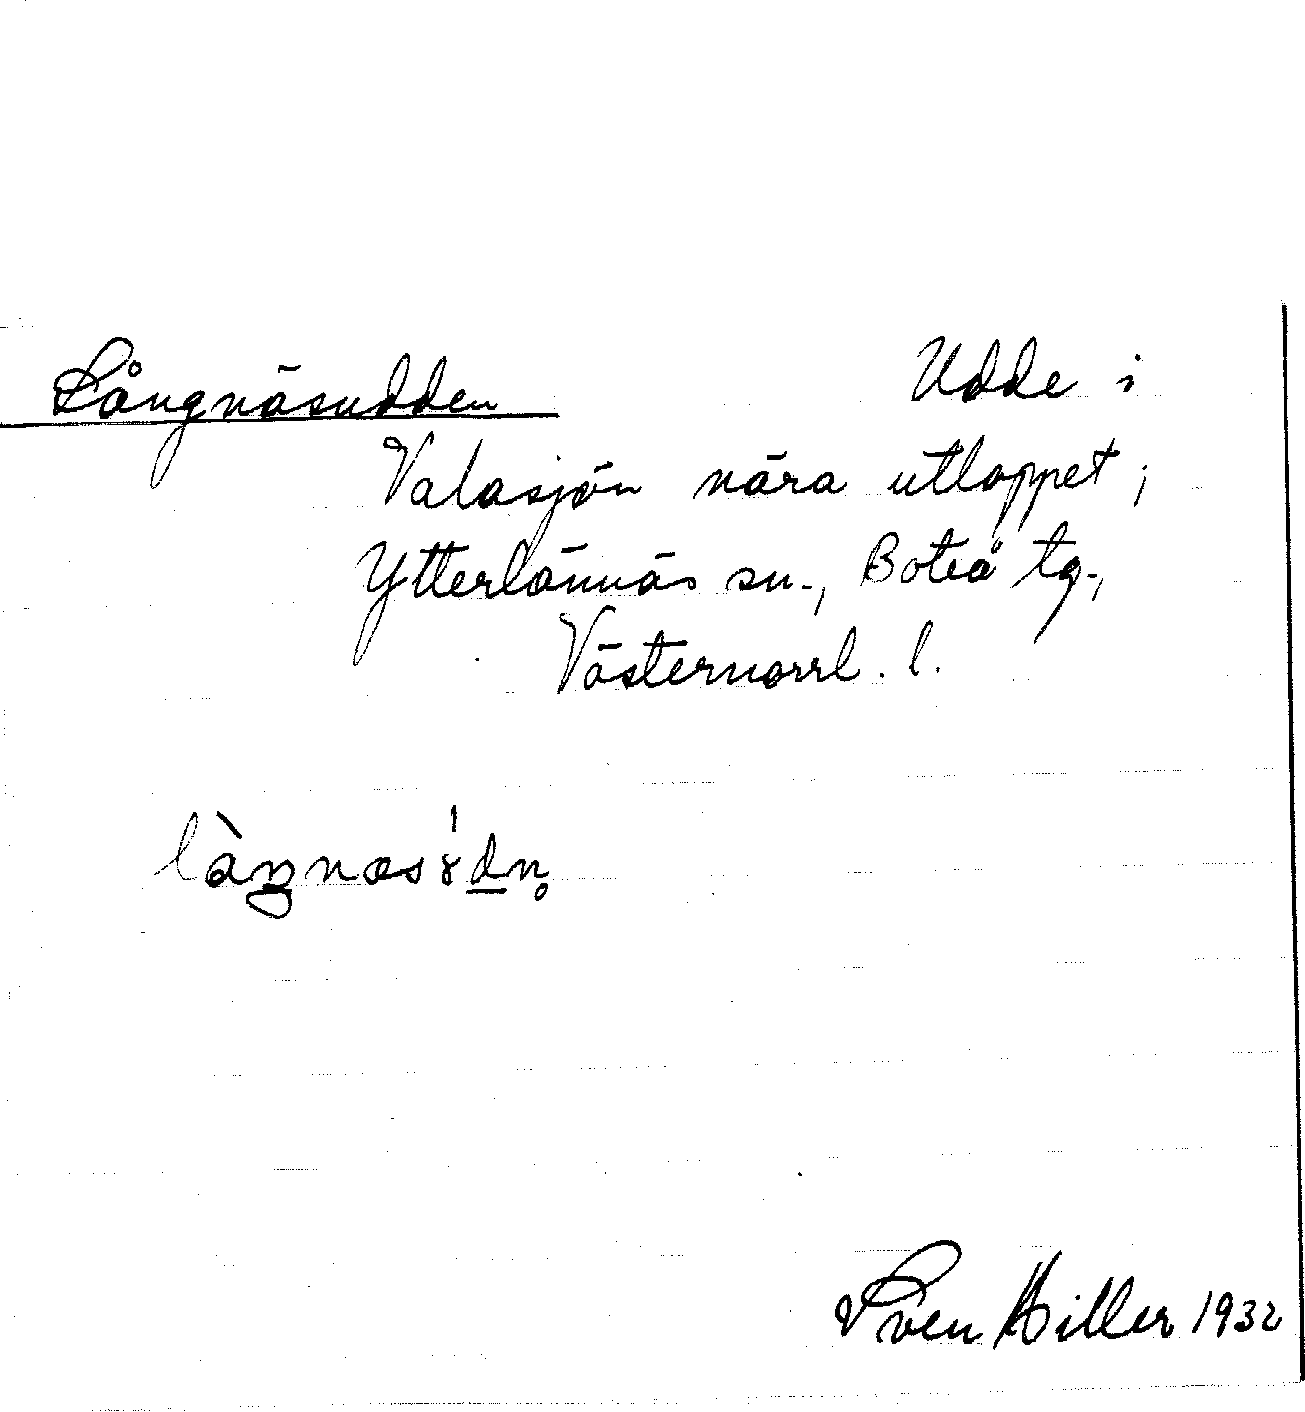 Långnäsudden Udde i
Valasjön nära utloppet;
Ytterlännäs sn., Boteå tg.,
Västernorrl. l.
Sven Hiller 1932